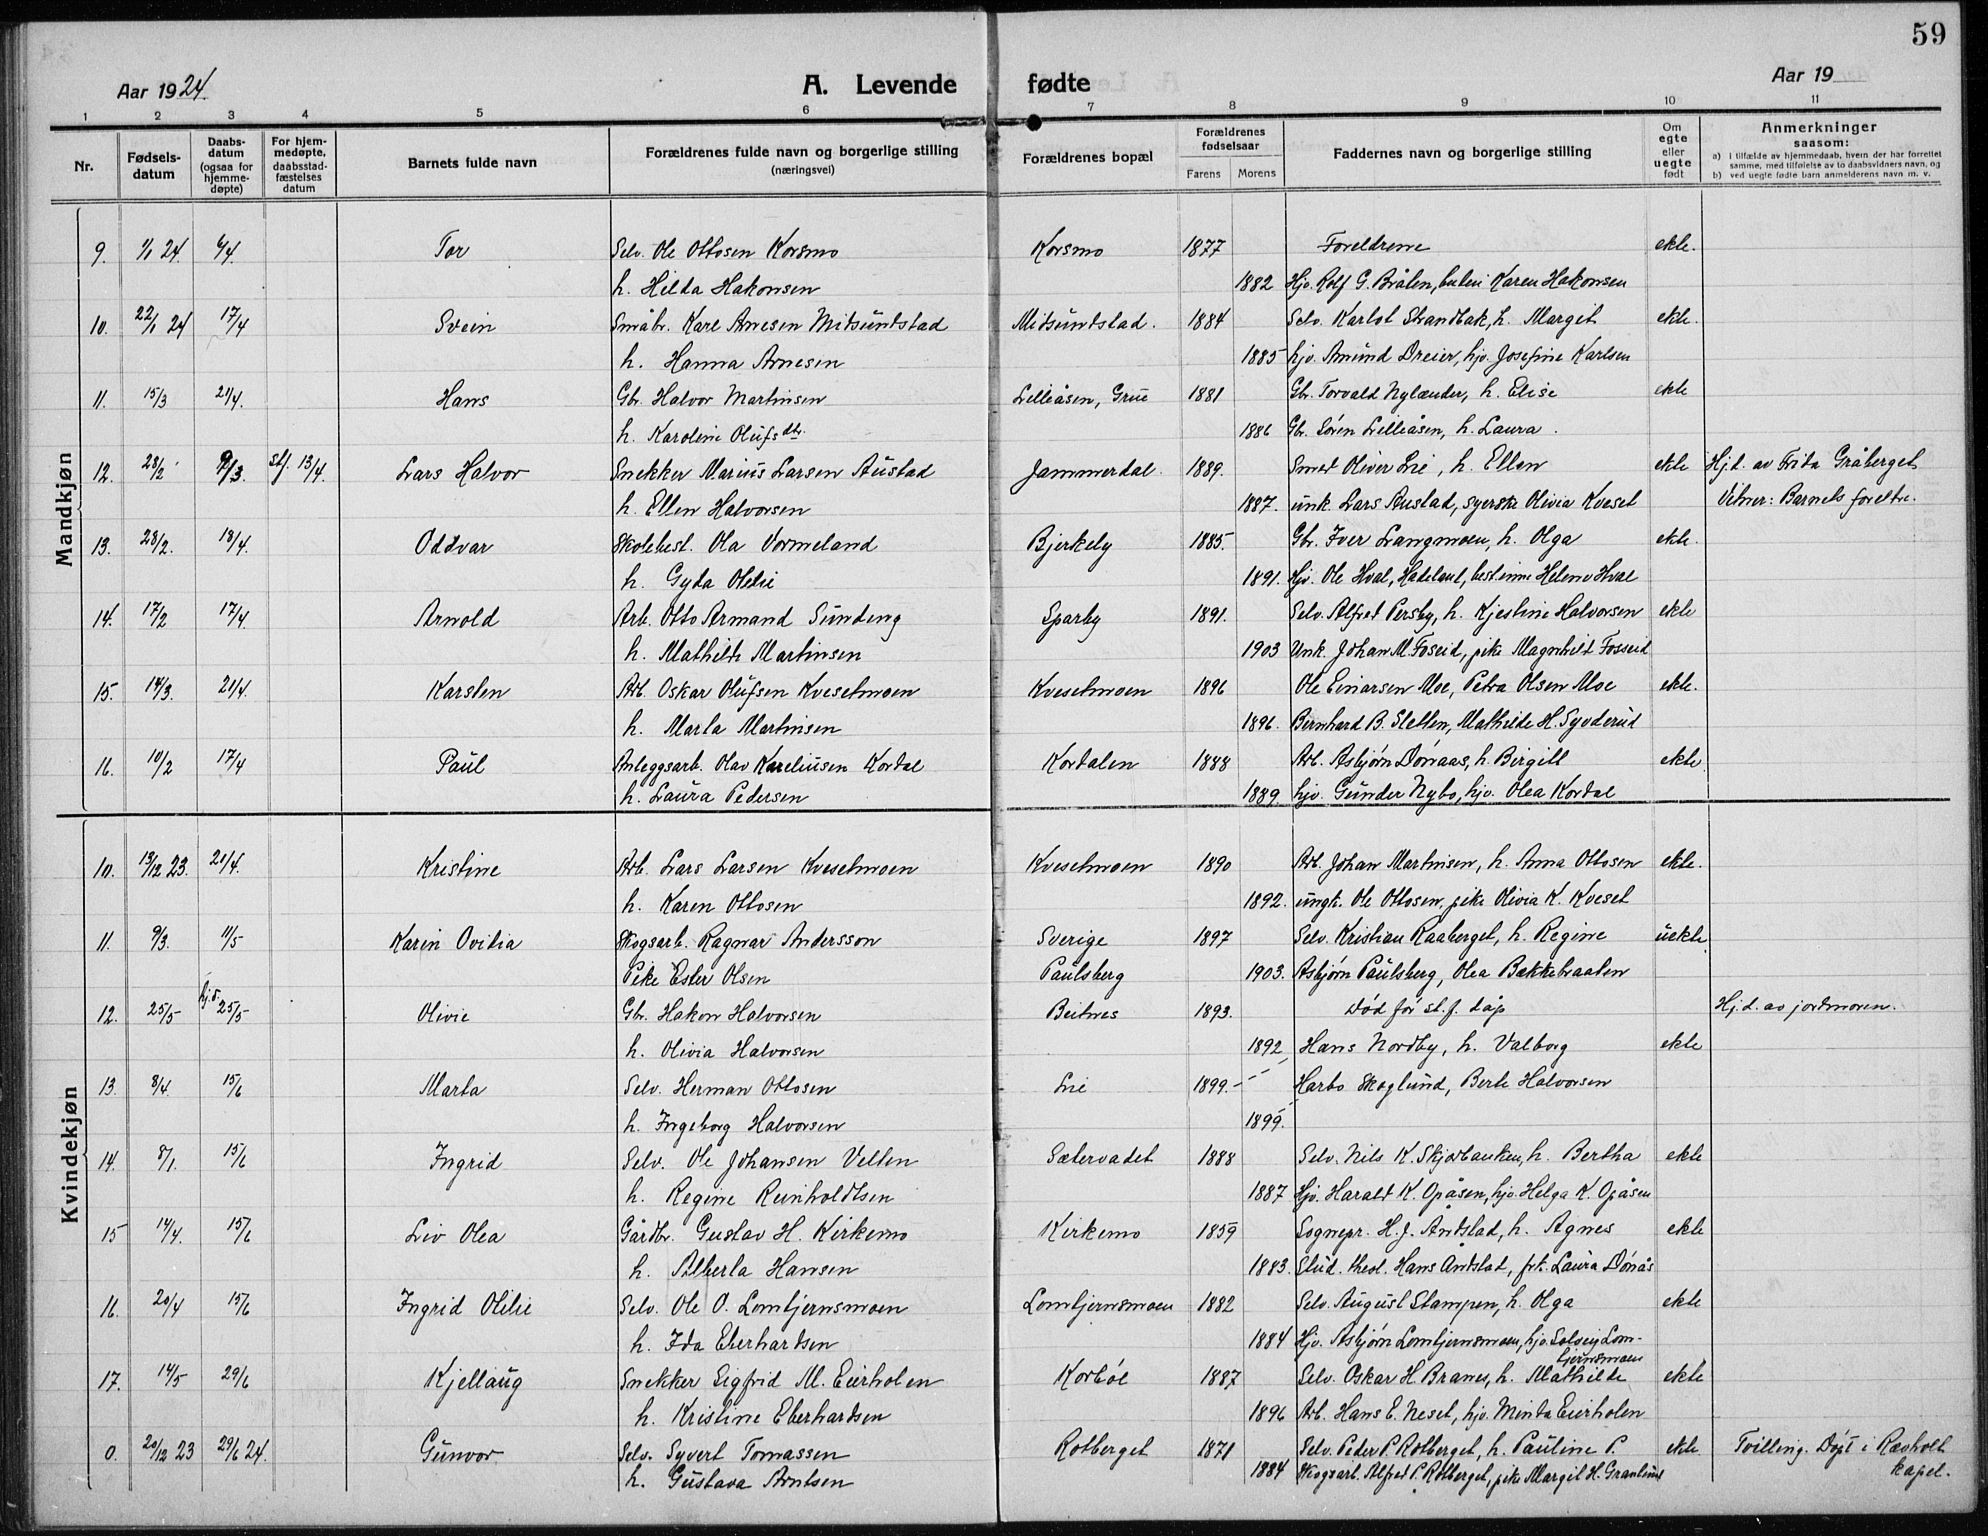 59
Aar 1924.
A. Levende fødte
Aar 19
1 2 3 4 5 6 7 8 9 10 11
Nr.
Fødsels-datum
Daabs-datum (ogsaa for hjemme-døpte)
For hjem-medøpte, daabsstad-fæstelses datum
Barnets fulde navn
Forældrenes fulde navn og borgerlige stilling (næringsvei)
Forældrenes bopæl
Forældrenes fødselsaar
Farens Morens
Faddernes navn og borgerlige stilling
Om egte eller uegte født
Anmerkninger saasom:
a) i tilfælde av hjemmedaab, hvem der har forrettet samme, med tilføielse av to daabsvidners navn, og
b) ved uegte fødte barn anmelderens navn m. v.
Mandkjøn
9. 1/1 24. 6/4. Tor Selv. Ole Ottosen Korsmo Korsmo 1877 Foreldrene ekte.
h. Hilda Hakonsen 1882 Hjv. Rolf G. Bråten, Karen Hakonsen
10. 22/1 24 17/4 Svein Småbr. Karl Arnesen Midsundstad Midsundstad. 1884 Selv. Karlot Strandbak, h. Margit ekte.
h. Hanna Arnesen 1885 hjv. Amund Dreier, hjv. Josefine Karlsen
11. 15/3 21/4. Hans Gbr. Halvor Martinsen Lilleåsen, Grue 1881 Gbr. Torvald Nylænder, h. Elise ekte
h. Karoline Olufsdtr. 1886 Gbr. Søren Lilleåsen, h. Laura.
12. 28/2 9/3. stf. 13/4. Lars Halvor Snekker Marius Larsen Austad Jammerdal. 1889. Smed Oliver Lie, h. Ellen ekte Hj.d. av Frida Gråberget
h. Ellen Halvorsen 1887. unk. Lars Austad, syerske Olivia Kveset Vitner: Barnets foreldre.
13. 28/2. 18/4. Oddvar Skolebest. Ola Vormeland Bjerkely 1885. Gbr. Iver Langmoen, h. Olga ekte.
h. Gyda Otelie 1891. Hjv. Ole Hval, Hadeland, best.inne Helene Hval
14. 17/2 17/4. Arnold Arb. Otto Armand Sundeng Sparby 1891. Selv. Alfred Persby, h. Kjestine Halvorsen ekte
h. Mathilde Martinsen 1903 Unk. Johan M. Foseid, pike Magnhild Fosseid
15. 14/3. 21/4. Karsten Arb. Oskar Olufsen Kvesetmoen Kvesetmoen 1896 Ole Einarsen Moe, Petra Olsen Moe ekte.
h. Marta Martinsen 1896. Bernhard B. Sletten, Mathilde H. Syverud
16. 10/2 17/4 Paul Anleggsarb. Olav Kareliusen Kordal Kordalen 1888 Arb. Asbjørn Dønaas, h. Birgitt ekte
h. Laura Pedersen 1889. hjv. Gunder Nybo, hjv. Olea Kordal
Kvindekjøn
10. 13/12 23. 21/4. Kristine Arb. Lars Larsen Kvesetmoen Kvesetmoen 1890 Arb. Johan Martinsen, h. Anna Ottosen ekte.
h. Karen Ottosen 1892. ungk. Ole Ottosen, pike Olivia K. Kveset
11. 9/3. 11/5 Karin Ovidia Skogsarb. Ragnar Andersson Sverige 1897 Selv. Kristian Raaberget, h. Regine uekte
Pike Ester Olsen Paulsberg 1903. Asbjørn Paulsberg, Olea Bækkebraaten
12. 25/5 hj.d. 25/5 Olivie Gbr. Hakon Halvorsen Beitnes 1893. Død før st. f. dåp Hj.d. av jordmoren.
h. Olivia Halvorsen 1892 Hans Nordby, h. Valborg ekte
13. 8/4. 15/6 Marta Selv. Herman Ottosen Lie 1899. Harbo Skoglund, Berte Halvorsen
h. Ingeborg Halvorsen 1899.
14. 8/1. 15/6 Ingrid Selv. Ole Johansen Velten Sætervadet 1888 Selv. Nils K. Skjørbauken, h. Bertha ekte
h. Regine Reinholdtsen 1887 Hjv. Harald K. Opåsen, hjv. Helga K. Opåsen
15 14/4. 15/6 Liv Olea Gårdbr. Gustav H. Kirkemo Kirkemo 1859 Sognepr. H. J. Åndstad, h. Agnes ekte
h. Alberta Hansen 1883. Stud. theol. Hans Åndstad, frk. Laura Dønås
16. 20/4 15/6 Ingrid Otilie Selv. Ole O. Lomtjernsmoen Lomtjernsmoen 1882 Selv. August Stampen, h. Olga ekte
h. Ida Eberhardsen 1884 Hjv. Asbjørn Lomtjernsmoen, hjv. Solveig Lom-
tjernsmoen
17. 14/5 29/6 Kjellaug Snekker Sigfrid M. Eierholen Korbøl 1887 Selv. Oskar H. Branes, h. Mathilde ekte
h. Kristine Eberhardsen 1896 Arb. Hans E. Neset, hjv. Minda Eierholen
0. 20/12 23 29/6 24. Gunvor Selv. Syvert Tomassen Rotberget 1871 Selv. Peder P. Rotberget, h. Pauline P. ekte Tvilling. Døpt i Ravholt
h. Gustava Arntsen 1884 Skogsarb. Alfred P. Rotberget, pike Margit H. Granlund kapel.